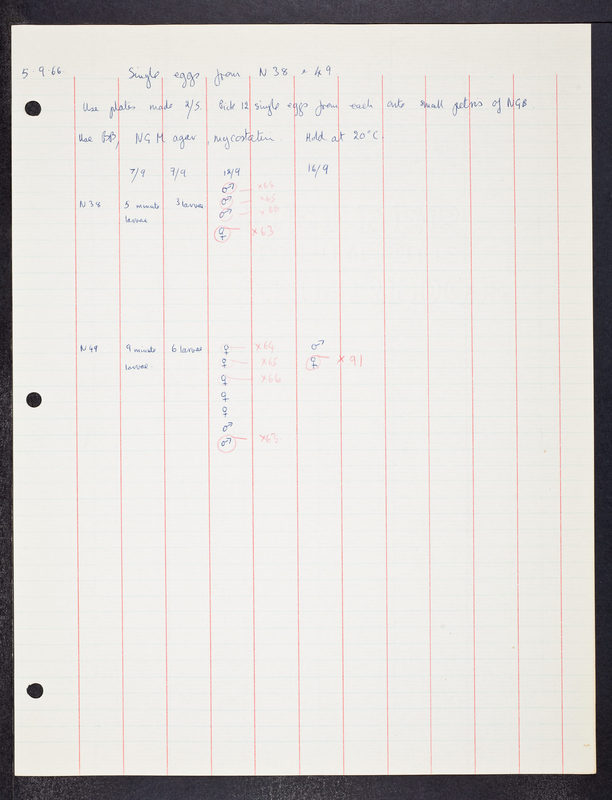 5.9.66 Single eggs from N38 + 49
Use plates made 2/5. Pick 12 single eggs from each onto small petris of NGB.
Use BB, NGM agar, mycostatin. Hold at 20°C.
7/9 7/9 12/9 16/9
♂ x64
♂ x65
N38 5 minute 3 larvae ♂ x66
larvae
♀ x63
N49 9 minute 6 larvae ♀ x64 ♂
larvae ♀ x65 ♀ x91
♀ x66
♀
♀
♂
♂ x63